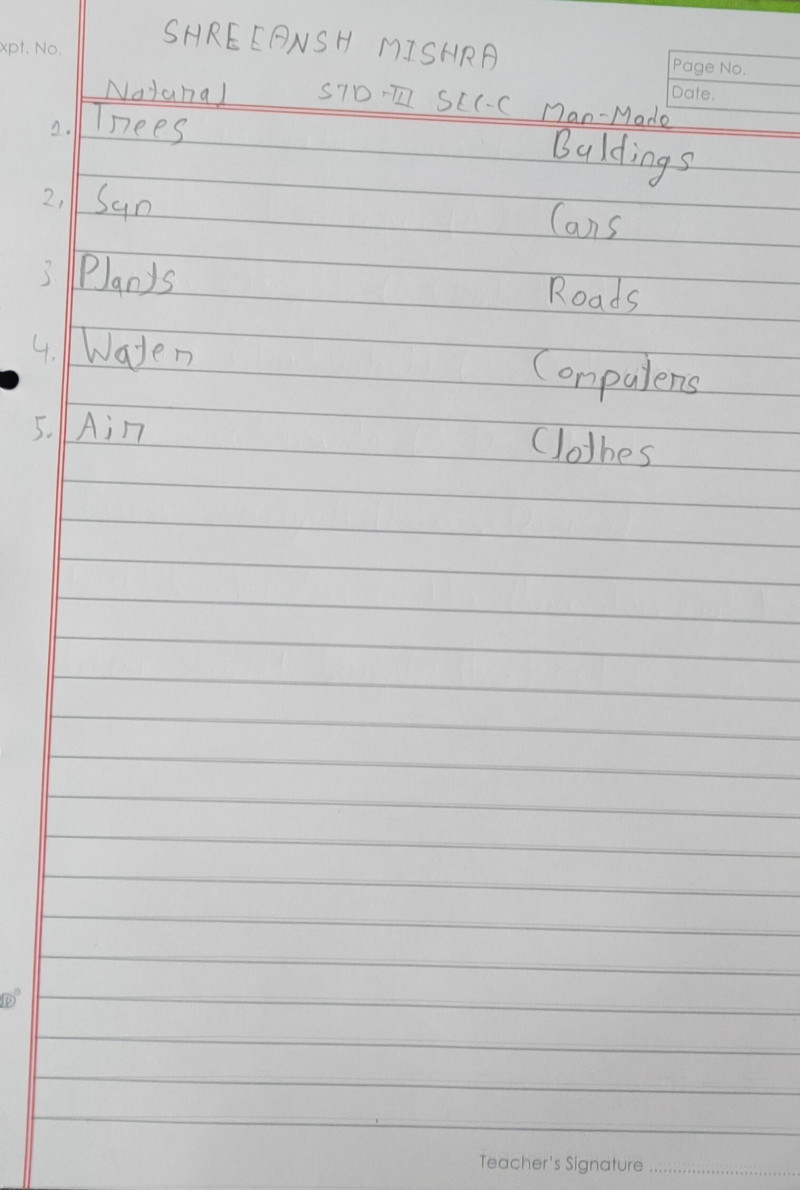 SHREEANSH MISHRA
Expt. No.
Page No.
Date.
Natural STD-III SEC-C Man-Made
1. Trees Buldings
2, Sun Cars
3 Plants Roads
4. Water Computers
5. Air Clothes
Teacher's Signature